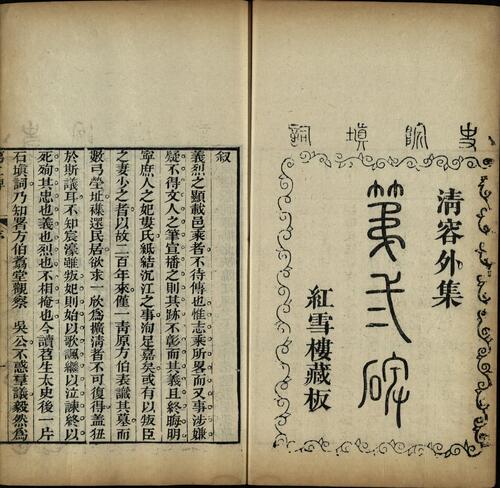 史院填詞
清容外集
第二碑
紅雪樓藏板
叙
義烈之顯載邑乘者不待傳也惟志乘所畧而又事涉嫌
疑不得文人之筆宣播之則其跡不彰而其義且終晦明
寧庶人之妃婁氏紙結沉江之事洵足嘉矣或有以叛臣
之妻少之者以故二百年來僅一靑原方伯表識其墓而
數弓塋址碟還民居欲求一欣爲擴淸者不可復得蓋狃
於斯議耳不知宸濠雖叛妃則始以歌諷繼以泣諫終以
死殉其忠也義也烈也不相掩也今讀苕生太史後一片
石塡詞乃知署方伯爲堂觀察 吳公不惑羣議毅然爲